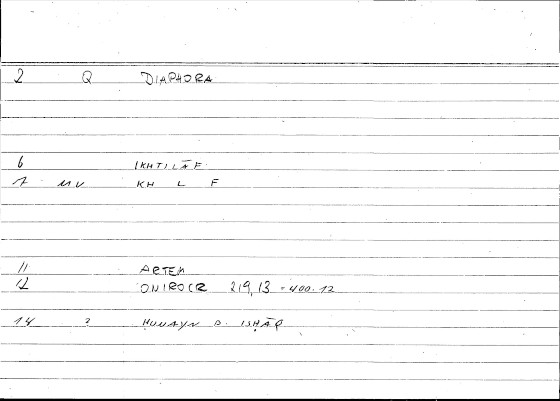 2 Q DIAPHORA
6 IKHTILĀF
7 MV KH L F
11 ARTEM
12 ONIROCR 219,13 = 400.12
14 2 ḤUNAYN B. ISḤĀQ